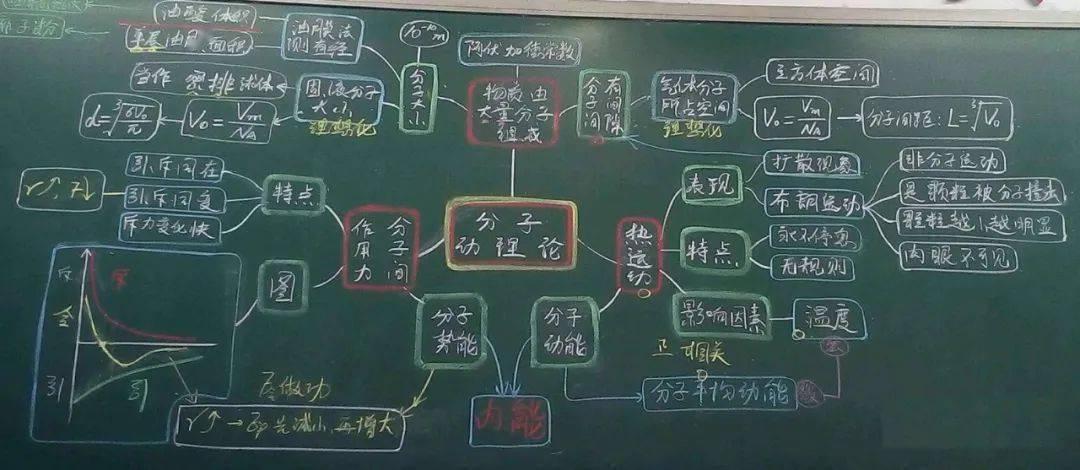 油酸体积
单层油膜面积
油膜法
测直径
10⁻¹⁰m
分子大小
当作 密排球体
固液分子
大小
理想化
V₀=Vm/NA
d=³√(6V₀/π)
阿伏加德常数
物质由
大量分子
组成
分子间隙
有间隙
气体分子
所占空间
理想化
立方体空间
V₀=Vm/NA
分子间距:L=³√V₀
分子
动理论
分子间
作用力
特点
引、斥同在
引、斥同变
斥力变化快
r↑ F↓
图
斥
合
引
斥
引
分子
势能
合做功
r↑→Ep先减小,再增大
热运动
表现
扩散现象
布朗运动
非分子运动
是颗粒被分子撞击
颗粒越小越明显
肉眼不可见
特点
永不停息
无规则
影响因素
温度
正相关
分子
动能
分子平均动能
内能